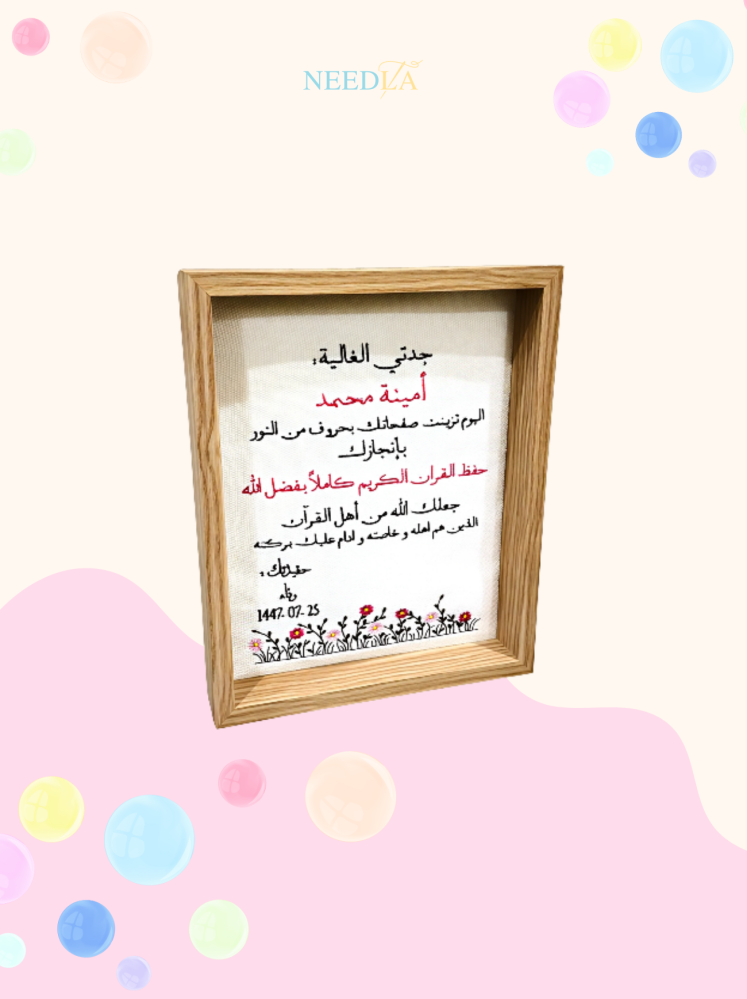 NEEDLA
جدتي الغالية:
أمينة محمد
اليوم تزينت صفحاتك بحروف من النور
بإنجازك
حفظ القران الكريم كاملاً بفضل الله
جعلك الله من أهل القرآن
الذين هم اهله و خاصته و ادام عليك بركته
حفيدتك :
وفاء
1447.07.25